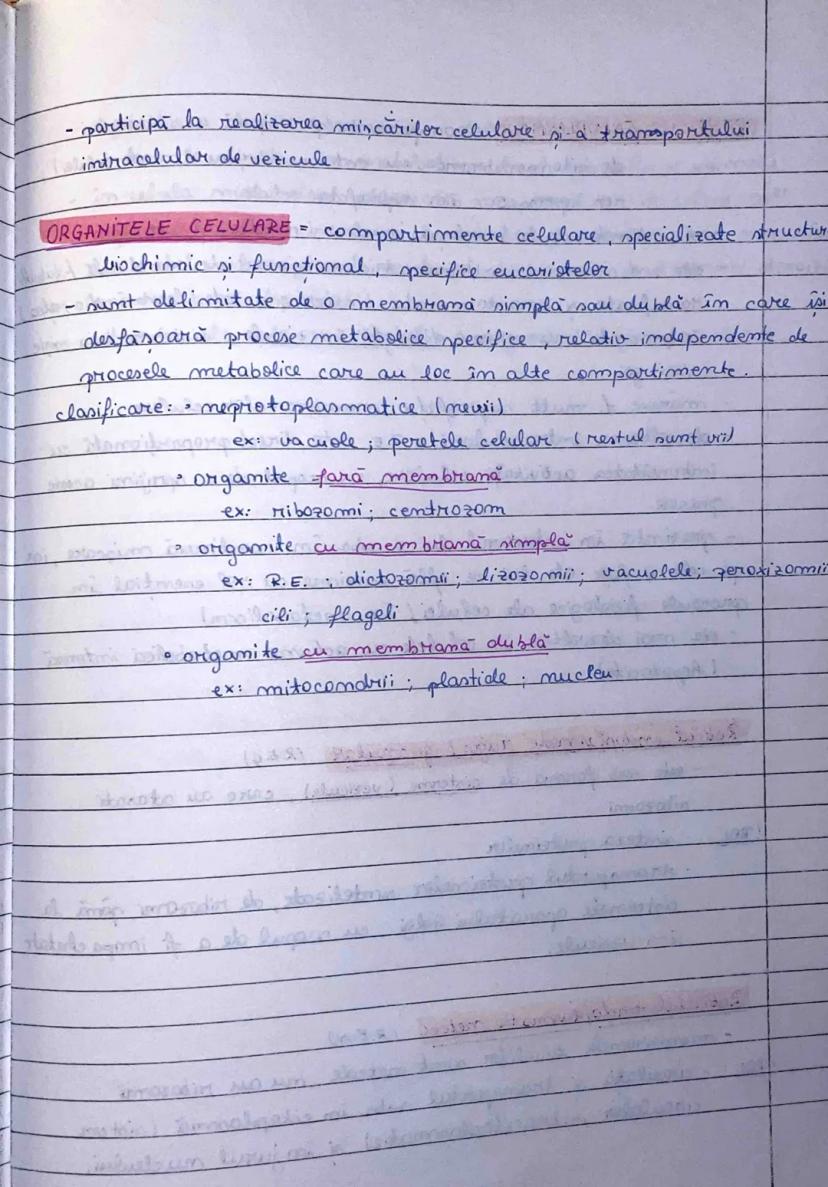 - participă la realizarea mișcărilor celulare și a transportului
intracelular de vezicule
ORGANITELE CELULARE = compartimente celulare, specializate structur
biochimic și funcțional, specifice eucariotelor
- sunt delimitate de o membrană simplă sau dublă în care își
desfășoară procese metabolice specifice, relativ independente de
procesele metabolice care au loc în alte compartimente.
clasificare: • neprotoplasmatice (nevii)
ex: vacuole; peretele celular (restul sunt vii)
• organite fără membrană
ex: ribozomi; centrozom
• organite cu membrană simplă
ex: R.E. ; dictozomii; lizozomii; vacuolele; peroxizomii
cili; flageli
• organite cu membrană dublă
ex: mitocondrii; plastide; nucleu